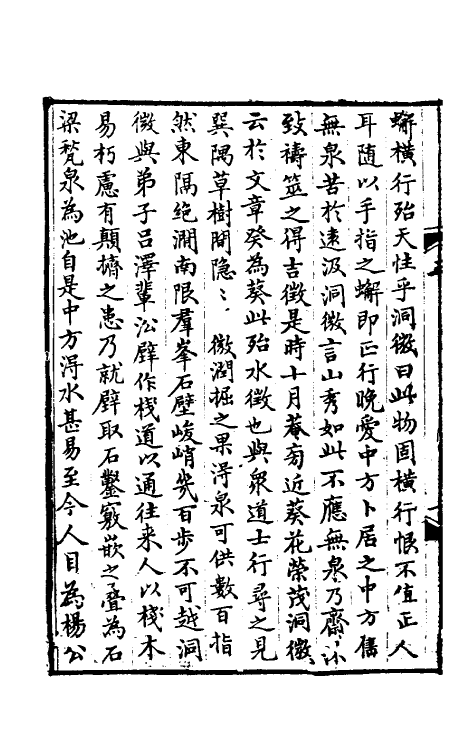 蠏橫行殆天性乎洞微曰此物固橫行恨不值正人
耳随以手指之蠏即正行晚愛中方卜居之中方舊
無泉苦於遠汲洞微言山秀如此不應無泉乃齋沐
致禱筮之得吉徵是時十月菴旁近葵花榮茂洞微
云於文章癸為葵此殆水徵也與眾道士行尋之見
巽隅草樹間隐〻微潤掘之果淂泉可供數百指
然東隔绝澗南限羣峯石壁峻峭㡬百步不可越洞
微與弟子吕澤軰㳂壁作棧道以通往来人以棧木
易朽慮有顛擠之患乃就壁取石鑿竅嵌之疊為石
梁甃泉為池自是中方淂水甚易至今人目為楊公